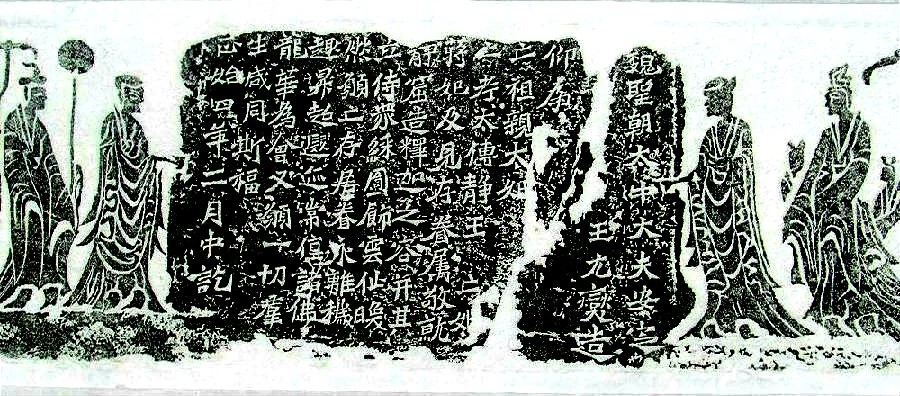 魏聖朝太中大夫安定
王元燮造
仰為
亡祖親太妃
亡考太傅静王亡妣
蔣妃及見存眷属敬就
靜窟造釋迦之容并其
立侍眾綵圓飾雲仙㬇
然願亡存居眷永離穢
趣昇超遐迹常值諸佛
龍華為會又願一切羣
生咸同斯福
正始四年二月中訖